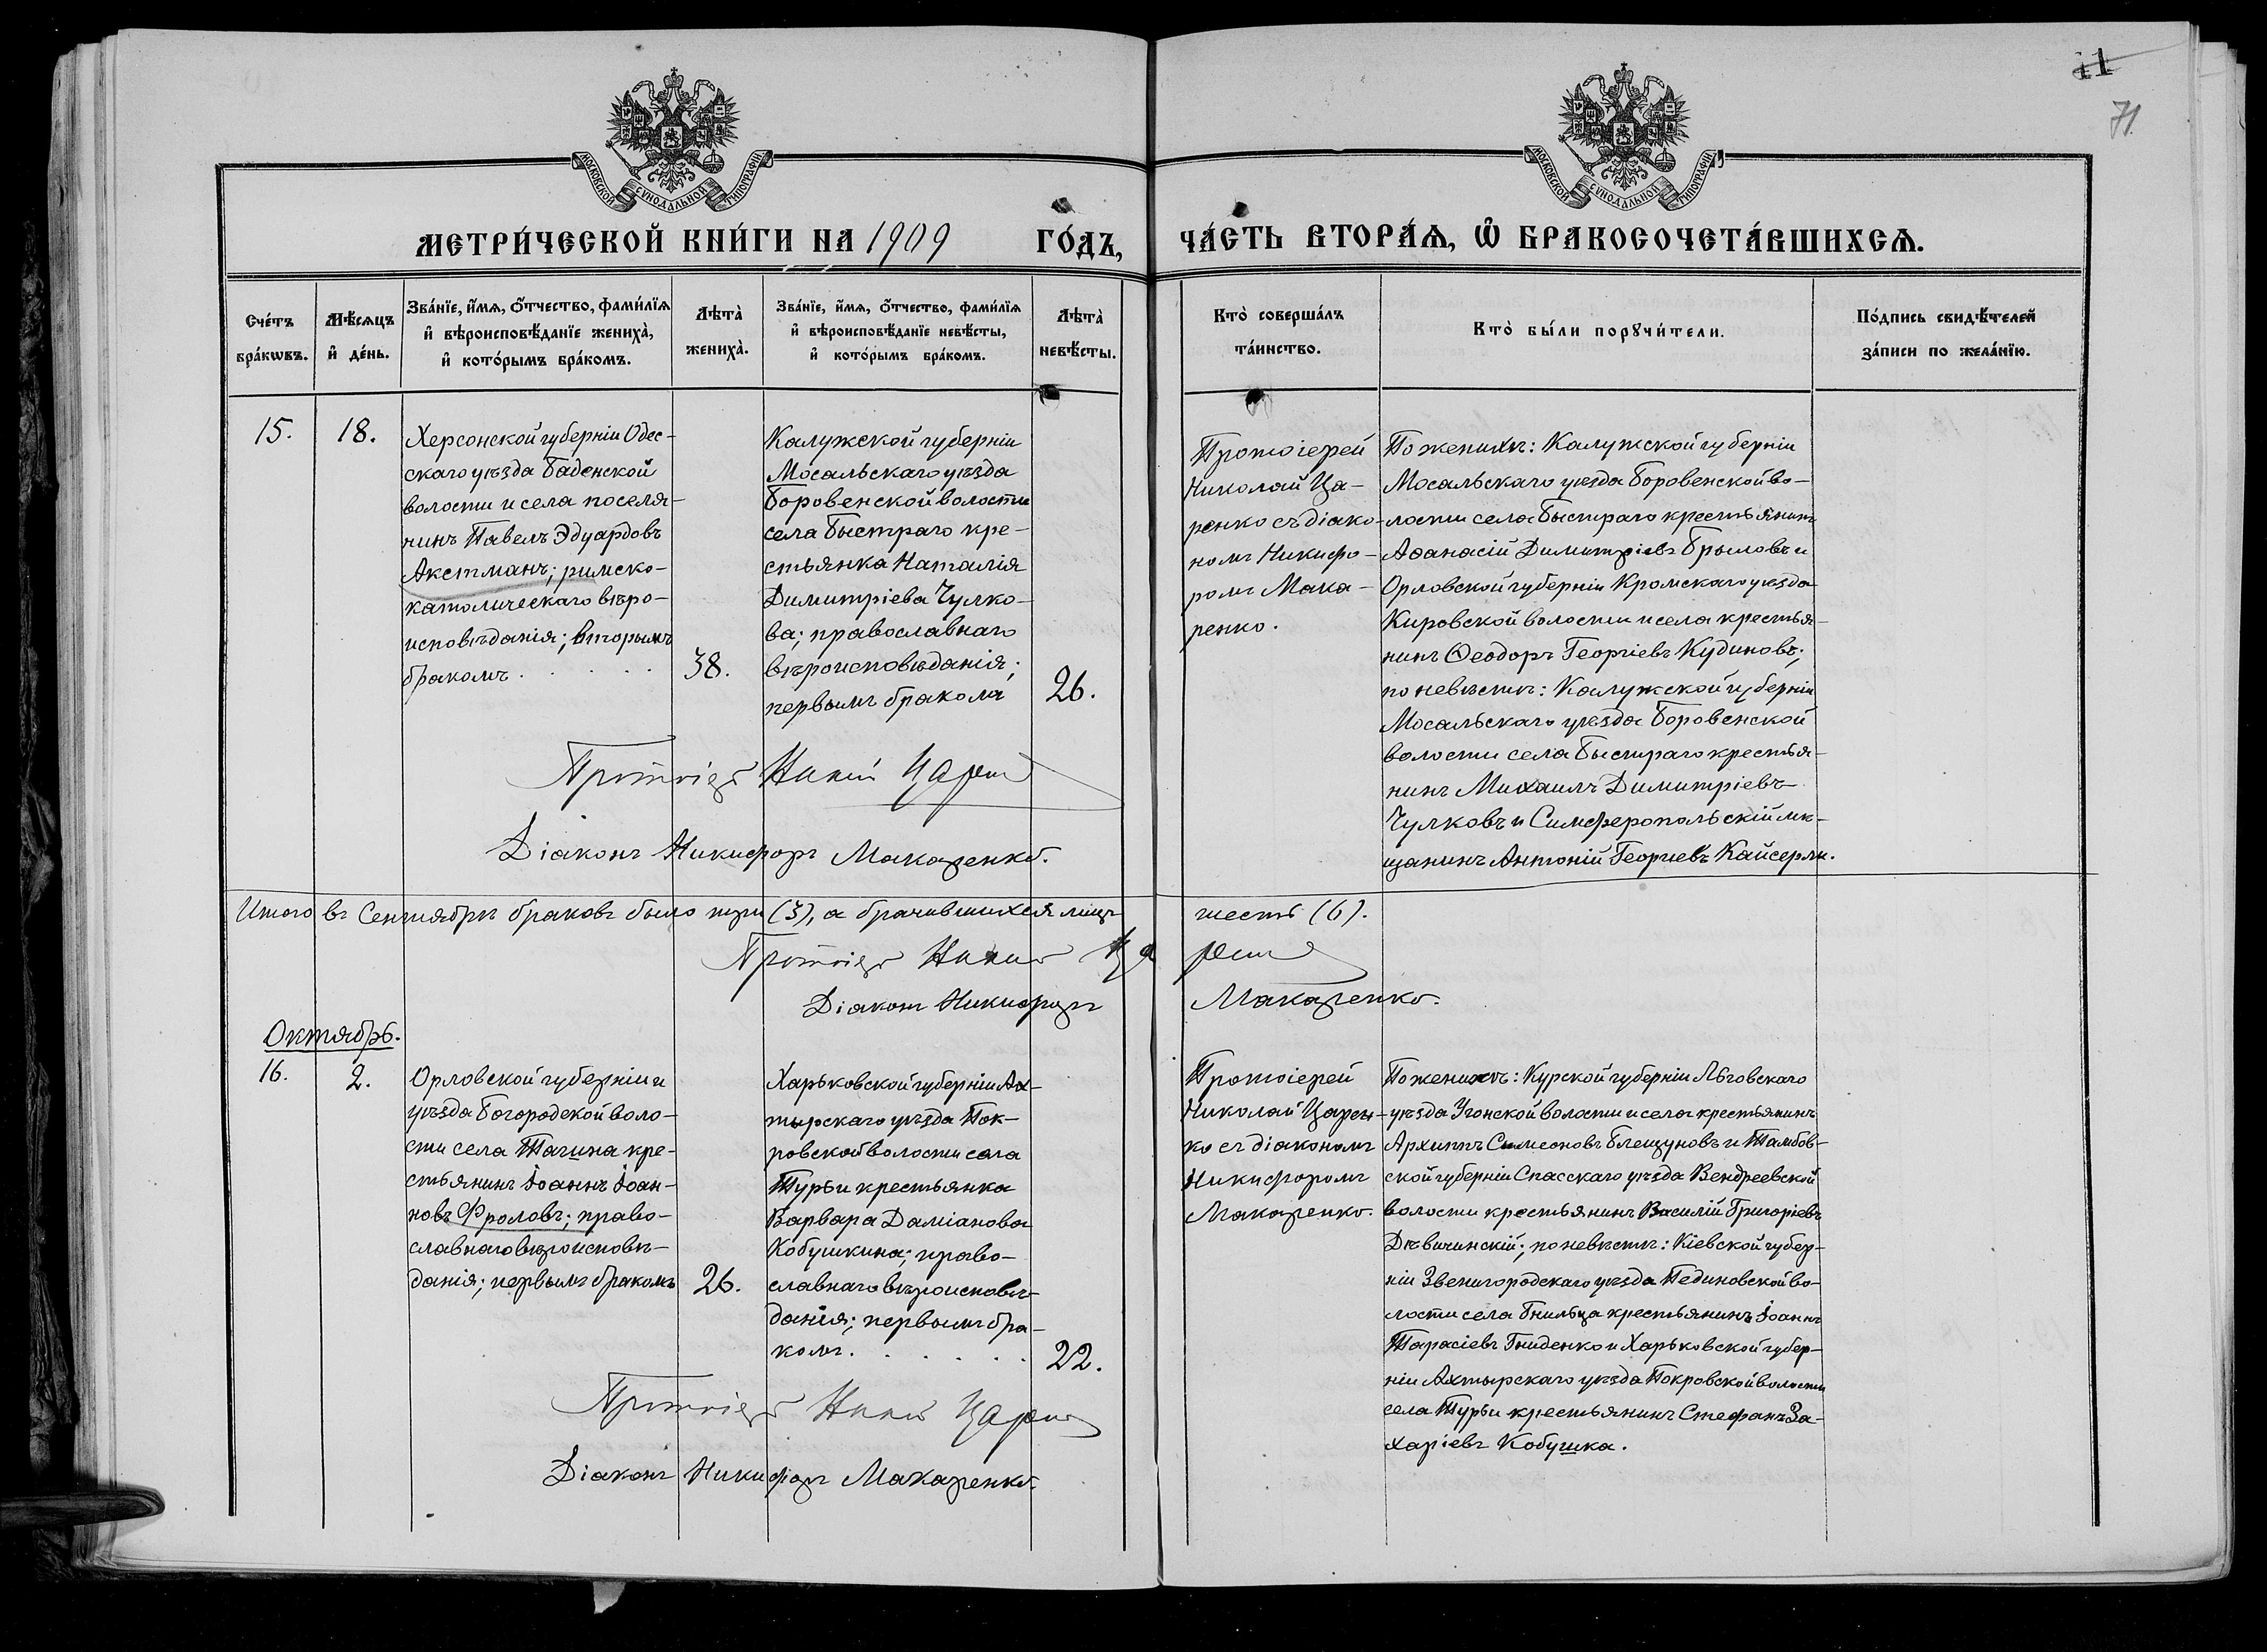 11
71.
МОСКОВСКОЙ СУНОДАЛЬНОЙ ТИПОГРАФІИ
МОСКОВСКОЙ СУНОДАЛЬНОЙ ТИПОГРАФІИ
МЕТРИ́ЧЕСКОЙ КНИ́ГИ НА 1909 ГО́ДЪ,
ЧА́СТЬ ВТОРА́Ѧ, Ѡ҆ БРАКОСОЧЕТА́ВШИХСѦ.
Сче́тъ
бра́кѡвъ.
Мѣ́сѧцъ
и҆ де́нь.
Зва́нїе, и҆́мѧ, ѻ҆́тчество, фами́лїѧ
и҆ вѣроисповѣ́данїе жениха̀,
и҆ кото́рымъ бра́комъ.
Лѣта̀
жениха̀.
Зва́нїе, и҆́мѧ, ѻ҆́тчество, фами́лїѧ
и҆ вѣроисповѣ́данїе невѣ́сты,
и҆ кото́рымъ бра́комъ.
Лѣта̀
невѣ́сты.
Кто̀ соверша́лъ
та́инство.
Кто̀ бы́ли порꙋчи́тели.
По́дпись свидѣ́телей
за́писи по жела́нїю.
15.
18.
Херсонской губерніи Одес-
скаго уѣзда Баденской
волости и села поселя-
нинъ Павелъ Эдуардовъ
Акстманъ; римско-
католическаго вѣро-
исповѣданія; вторымъ
бракомъ . . . .
38.
Калужской губерніи
Мосальскаго уѣзда
Боровенской волости
села Быстраго кре-
стьянка Наталія
Димитріева Чулко-
ва; православнаго
вѣроисповѣданія;
первымъ бракомъ
26.
Протоіерей
Николай Ца-
ренко съ діако-
номъ Никифо-
ромъ Мака-
ренко.
По женихѣ: Калужской губерніи
Мосальскаго уѣзда Боровенской во-
лости села Быстраго крестьянинъ
Аѳанасій Димитріевъ Брыловъ и
Орловской губерніи Кромскаго уѣзда
Кировской волости и села крестья-
нинъ Ѳеодоръ Георгіевъ Кудиновъ;
по невѣстѣ: Калужской губерніи
Мосальскаго уѣзда Боровенской
волости села Быстраго крестья-
нинъ Михаилъ Димитріевъ
Чулковъ и Симферопольскій мѣ-
щанинъ Антоній Георгіевъ Кайсерли.
Протоіер Никол Царен
Діаконъ Никифоръ Макаренко.
Итого въ Сентябрѣ браковъ было три (3), а брачившихся лицъ шесть (6).
Протоіер Никол Царен
Діаконъ Никифоръ Макаренко.
Октябрь.
16.
2.
Орловской губерніи и
уѣзда Богородской воло-
сти села Тагина кре-
стьянинъ Іоаннъ Іоан-
новъ Фроловъ; право-
славнаго вѣроисповѣ-
данія; первымъ бракомъ
26.
Харьковской губерніи Ах-
тырскаго уѣзда Пок-
ровской волости села
Турьи крестьянка
Варвара Даміанова
Кобушкина; право-
славнаго вѣроисповѣ-
данія; первымъ бра-
комъ. . . . . .
22.
Протоіерей
Николай Царен-
ко съ діакономъ
Никифоромъ
Макаренко.
По женихѣ: Курской губерніи Льговскаго
уѣзда Угонской волости и села крестьянинъ
Архипъ Симеоновъ Блещуновъ и Тамбов-
ской губерніи Спасскаго уѣзда Вендреевской
волости крестьянинъ Василій Григоріевъ
Дѣвичинскій; по невѣстѣ: Кіевской губер-
ніи Звенигородскаго уѣзда Пединовской во-
лости села Гнильца крестьянинъ Іоаннъ
Тарасіевъ Гниденко и Харьковской губер-
ніи Ахтырскаго уѣзда Покровской волости
села Турьи крестьянинъ Стефанъ За-
харіевъ Кобушка.
Протоіер Никол Царен
Діаконъ Никифоръ Макаренко.